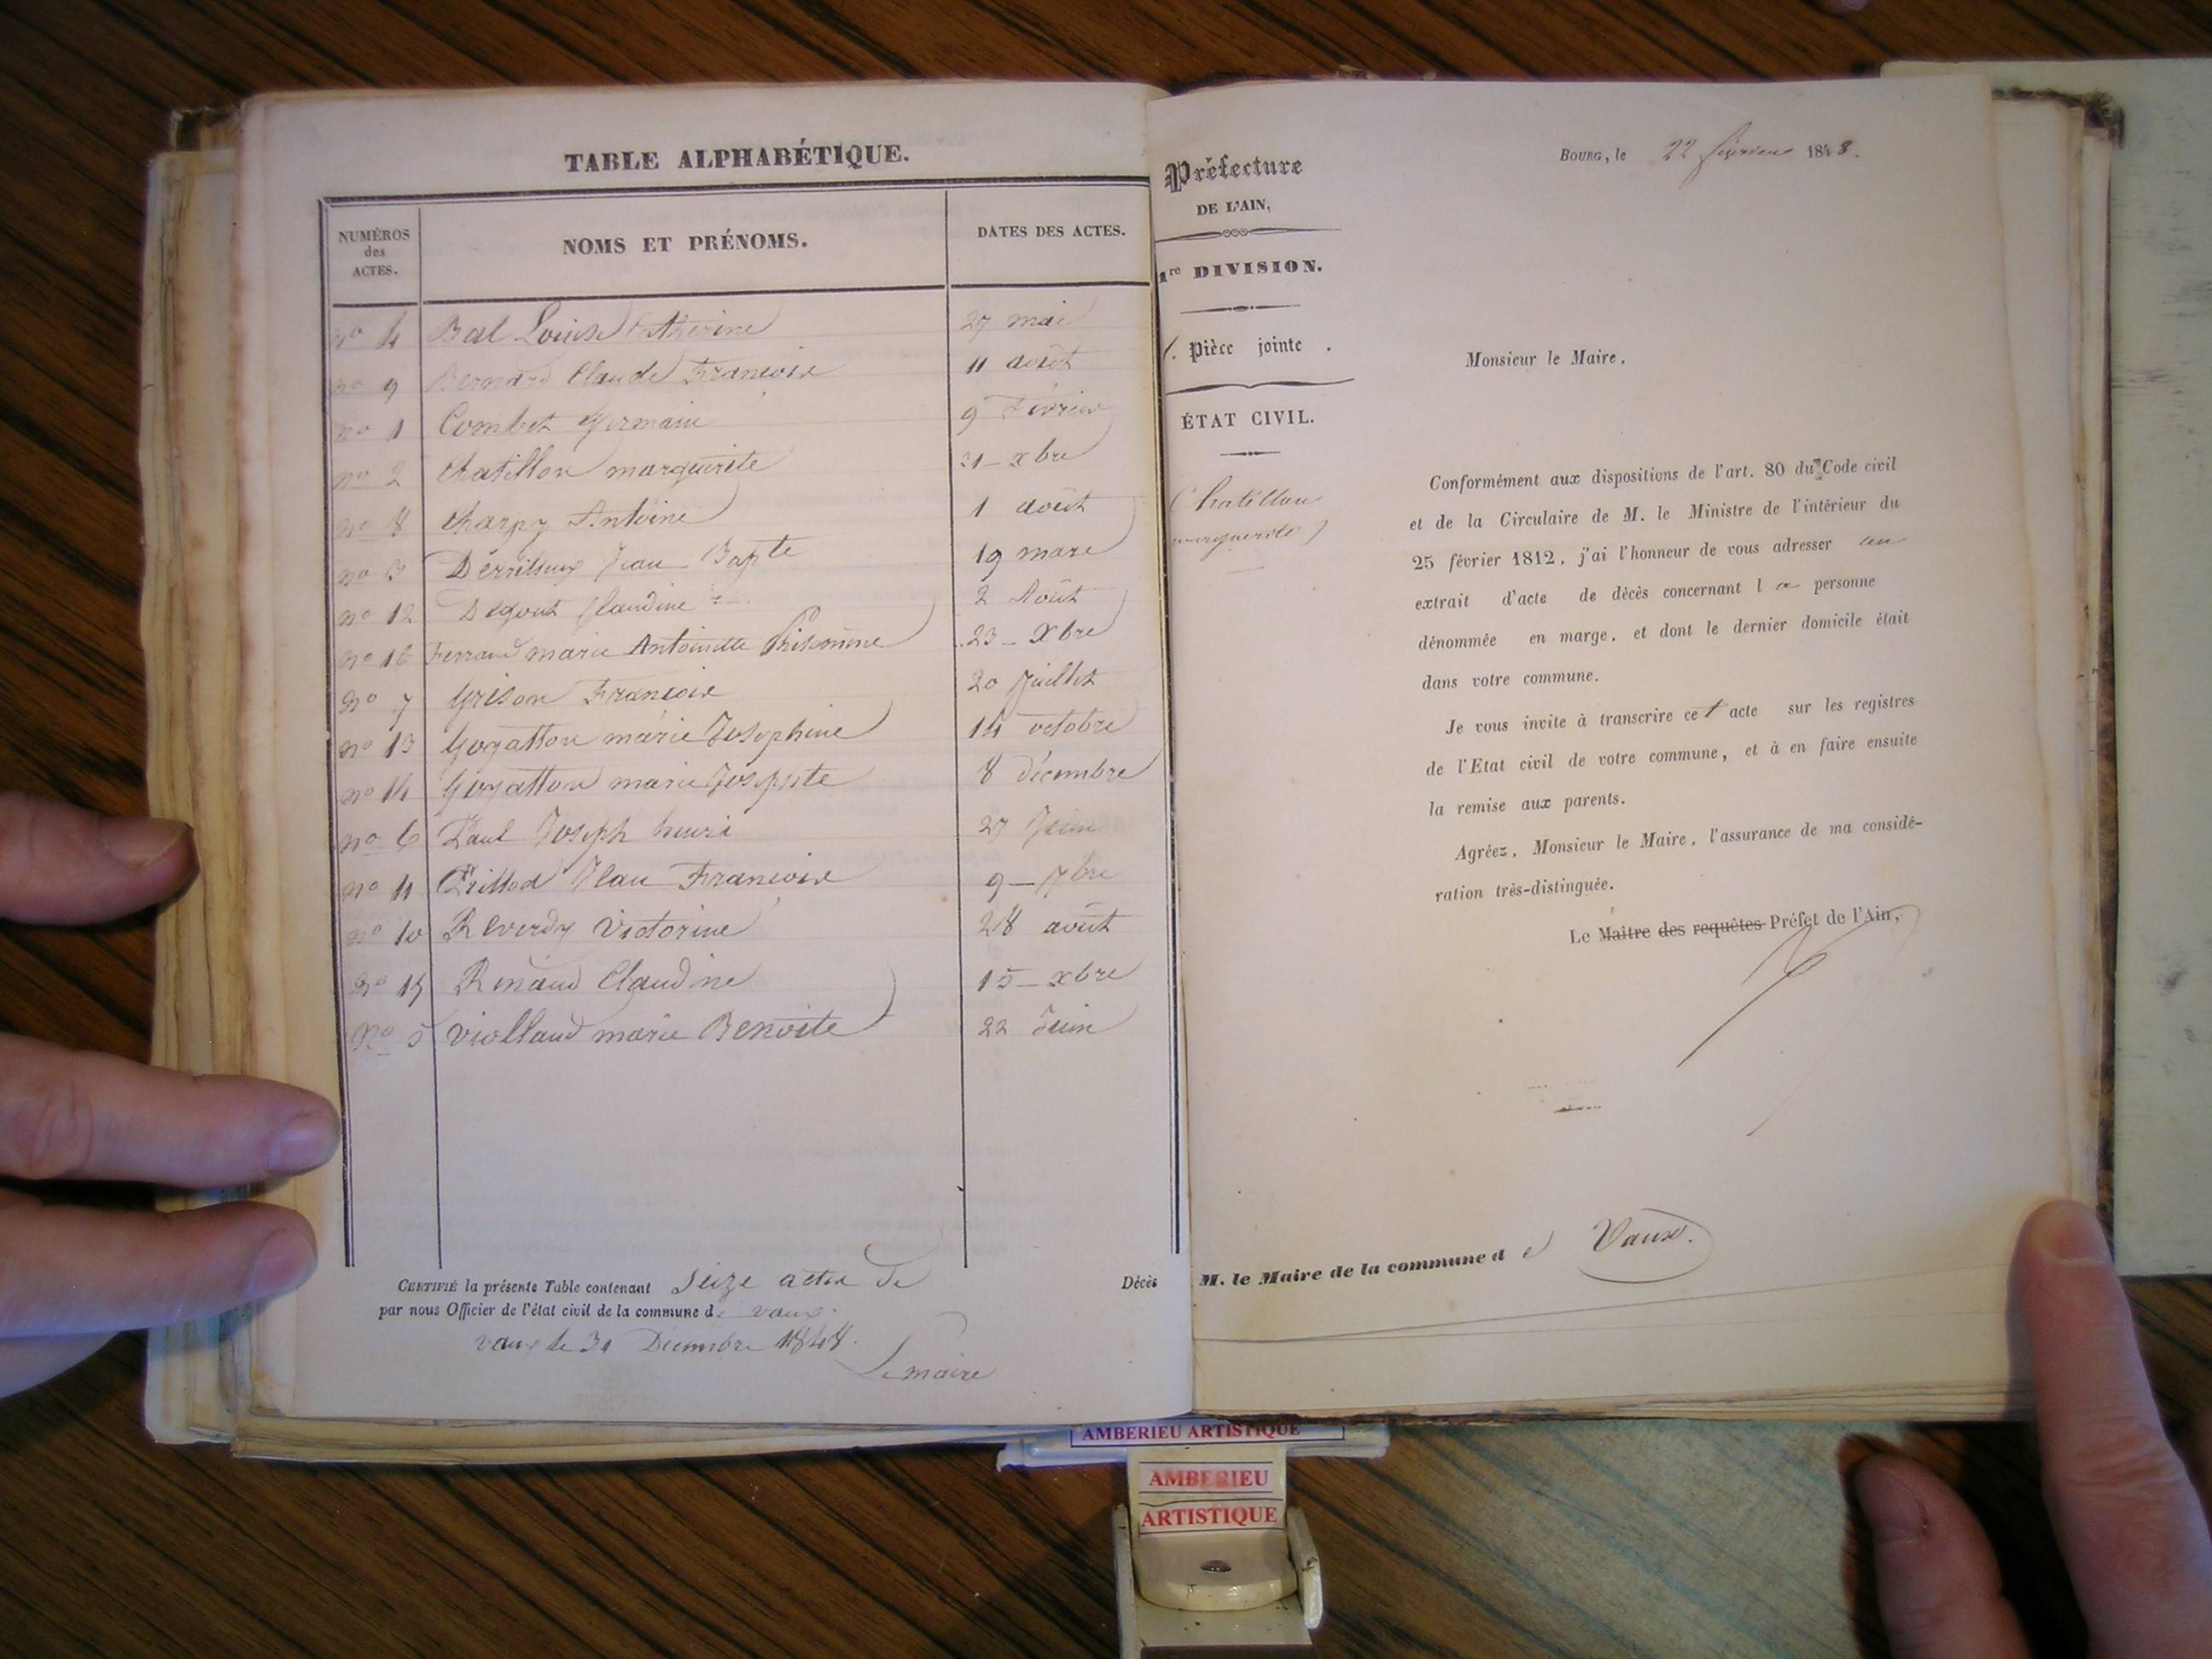 TABLE ALPHABÉTIQUE.
NUMÉROS
des
ACTES.
NOMS ET PRÉNOMS.
DATES DES ACTES.
no 4 Bal Louise Catherine 27 mai
no 9 Bernard Claude François 11 août
no 1 Combet Germain 9 Février
no 2 Chatillon marguerite 31 - xbre
no 8 Charpy Antoine 1 août
no 3 Jean Bapte 19 mars
no 12 Claudine 2 Août
no 16 Ferrand marie Antoinette 23 - Xbre
no 7 Grison François 20 Juillet
no 13 Goyatton marie Josephine 14 octobre
no 14 Goyatton marie Josephte 8 décembre
no 6 Paul Joseph henri 27 Juin
no 11 Jean François 9 - 7bre
no 10 Reverdy Victorine 28 août
no 15 Renaud Claudine 15 - xbre
No 5 Viollaud marie Benoite 22 Juin
CERTIFIÉ la présente Table contenant Seize actes de Décès
par nous Officier de l'état civil de la commune de vaux.
vaux le 31 Décembre 1848.
Le maire
Préfecture
DE L'AIN,
1re DIVISION.
1. Pièce jointe.
ÉTAT CIVIL.
Chatillon
marguerite
BOURG, le 22 février 1848.
Monsieur le Maire,
Conformément aux dispositions de l'art. 80 du Code civil
et de la Circulaire de M. le Ministre de l'intérieur du
25 février 1812, j'ai l'honneur de vous adresser un
extrait d'acte de décès concernant la personne
dénommée en marge, et dont le dernier domicile était
dans votre commune.
Je vous invite à transcrire cet acte sur les registres
de l'Etat civil de votre commune, et à en faire ensuite
la remise aux parents.
Agréez, Monsieur le Maire, l'assurance de ma considé-
ration très-distinguée.
Le Maître des requêtes Préfet de l'Ain,
M. le Maire de la commune de Vaux.
AMBERIEU ARTISTIQUE
AMBERIEU
ARTISTIQUE